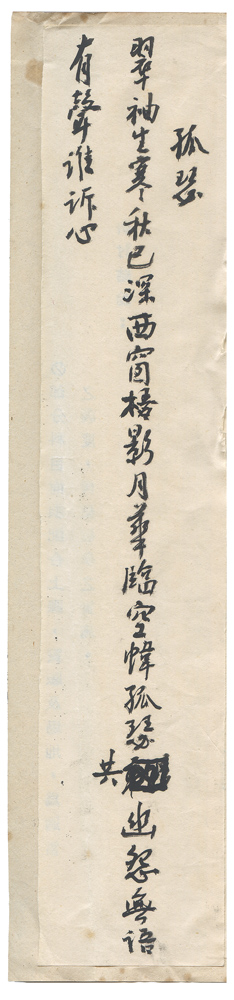 孤瑟
翠袖生寒秋已深西窗梧影月華臨空幃孤瑟共幽怨無語
有聲誰訴心